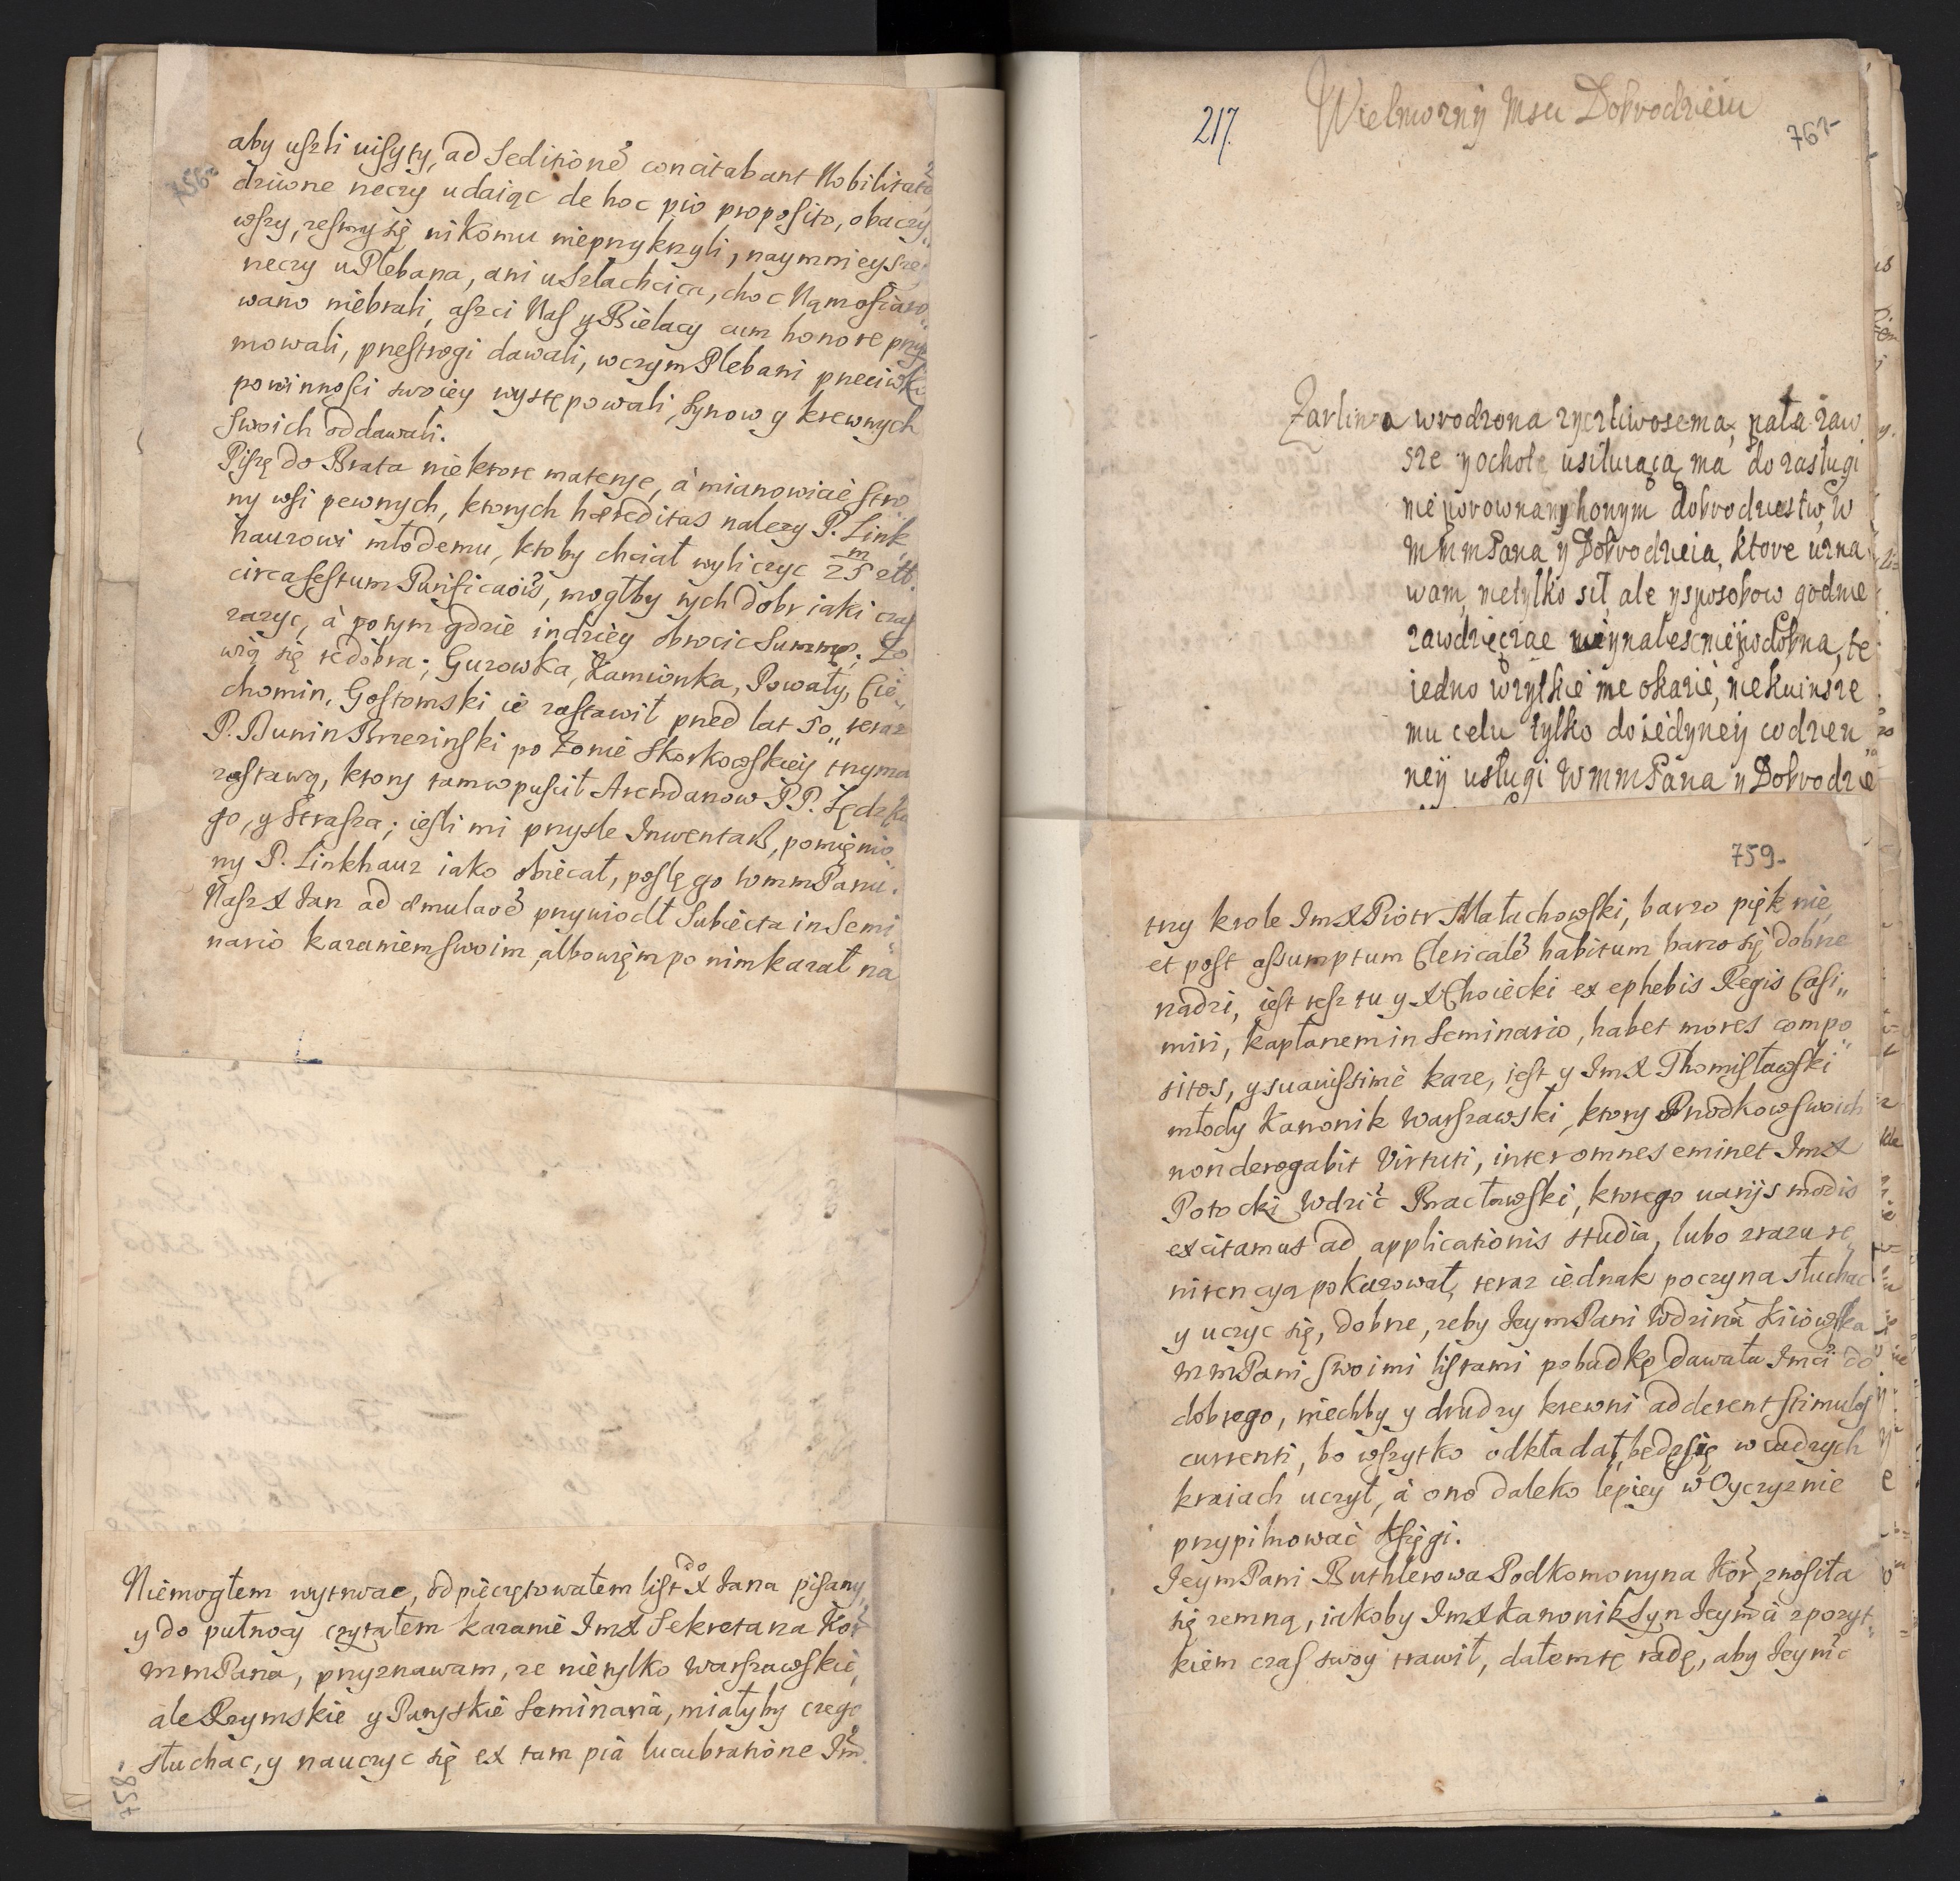 756
aby uszli uisyty, ad Seditionē concitabant Nobilitatē
dziwne rzeczy udaiąc de hoc pio proposito, obaczy„
wszy, zesmy się nikomu nieprzykrzyli, naymnieysze„
rzeczy u Plebana, ani u Szlachcica, choc Nąmofiaro„
wano niebrali, aszci Nas y Bielacy cum honore przy
mowali, przestrogi dawali, w czym Plebani przeciwko
powinnosci swoiey występowali, synow y krewnych
swoich oddawali.
Piszę do Brata niektore materye, à mianowicie stro„
ny wsi pewnych, ktorych hæreditas nalezy P. Link
hauzowi młodemu, ktoby chciał wyliczyc 25 m ztt.
circa festum Purificaōis, mogłby tych dobr iaki czas
zazyc, à potym gdzie indziey obrocic Summę; Zo
wią się te dobra; Gurowka, Kamionka, Powały, Cie„
chomin, Gostomski ie zastawił przed lat 50„ teraz
P. Bunin Brzezinski po Zonie Skorkowskiey trzyma
zastawą, ktory tam wpuscił Arendarzow PP. Zędzka
go, y Strasza; iesli mi przysle Inwentarz, pomięnio„
ny P. Linkhauz iako obiecał, poslę go WmmPanu.
Nasz X Jan ad æmulaōē przywiodł Subiecta in Semi„
nario kazaniem swoim, albowięm po nim kazał na
Niemogłem wytrwac, odpieczętowałem list do X Jana pisany,
y do pułnocy czytałem kazanie ImX Sekretarza Kor
mmPana, przyznawam, ze nietylko Warszawskie,
ale Rzymskie y Paryskie Seminaria, miałyby czego
słuchac, y nauczyc się ex tam pia lucubratione Im
758
217.
Wielmozny Msu Dobrodzieiu
761
Zarliwa wrodzona zyczliwosc ma, pała zaw
sze y ochotę usiłuiącą ma do zasługi
nieporownanyhonym dobrodziestw, W
mmmPana y Dobrodzieia, ktore uzna
wam, nietylko sił, ale y sposobow godnie
zawdzięczac niey nalesc niepodobna, te
iedno wszytkie me okazie, nieku insze
mu celu tylko do iedyney codzien„
ney usługi WmmPana y Dobrodzie
759
trzy krole ImX Piotr Małachowski, barzo pięknie,
et post assumptum Clericalē habitum barzo się dobrze
radzi, iest tesz tu y X Choiecki ex ephebis Regis Casi„
miri, kapłanem in Seminario, habet mores compo„
sitos, y suauissimè kaze, iest y ImX Thomisławski
młody Kanonik Warszawski, ktory Przodkow swoich
non derogabit Virtuti, inter omnes eminet ImX
Potocki Wdzic Bracławski, ktorego uarijs modis
excitamus ad applicationis studia, lubo zrazu re„
nitencya pokazował, teraz iednak poczyna słuchac
y uczyc się, dobrze, zeby Jeym Pani Wdzina Kiiowska
mmPani swoimi listami pobudkę dawała Imci do
dobrego, niechby y drudzy krewni adderent stimulos
currenti, bo wszytko odkładał, będzie się w cudzych
kraiach uczył, à ono daleko lepiey w Oyczyznie
przypilnować Księgi.
Jeym Pani Buthlerowa Podkomorzyna Kor, znosiła
się zemną, iakoby ImX Kanonik Syn Jeymci z pozyt„
kiem czas swoy trawił, dałem tę radę, aby Jeymc